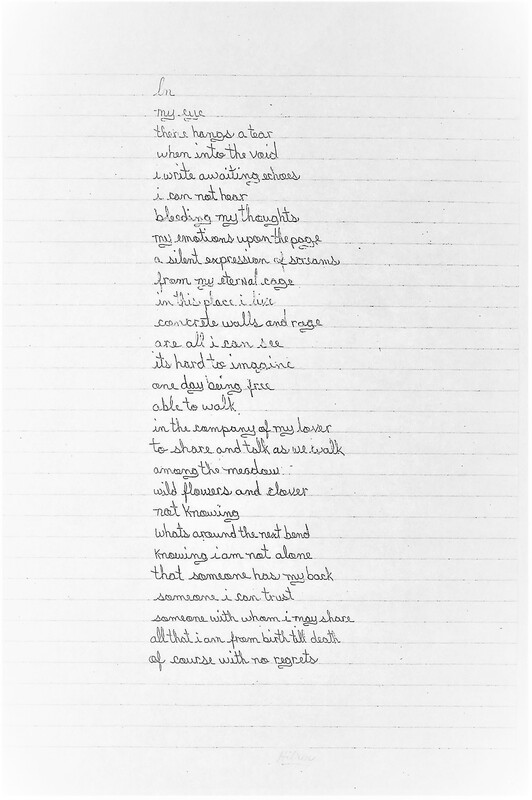 In
my eye
there hangs a tear
when into the void
i write awaiting echoes
i can not hear
bleeding my thoughts
my emotions upon the page
a silent expression of screams
from my eternal cage
in this place i live
concrete walls and rage
are all i can see
its hard to imagine
one day being free
able to walk
in the company of my lover
to share and talk as we walk
among the meadow
wild flowers and clover
not knowing
whats around the next bend
knowing i am not alone
that someone has my back
someone i can trust
someone with whom i may share
all that i am from birth till death
of course with no regrets